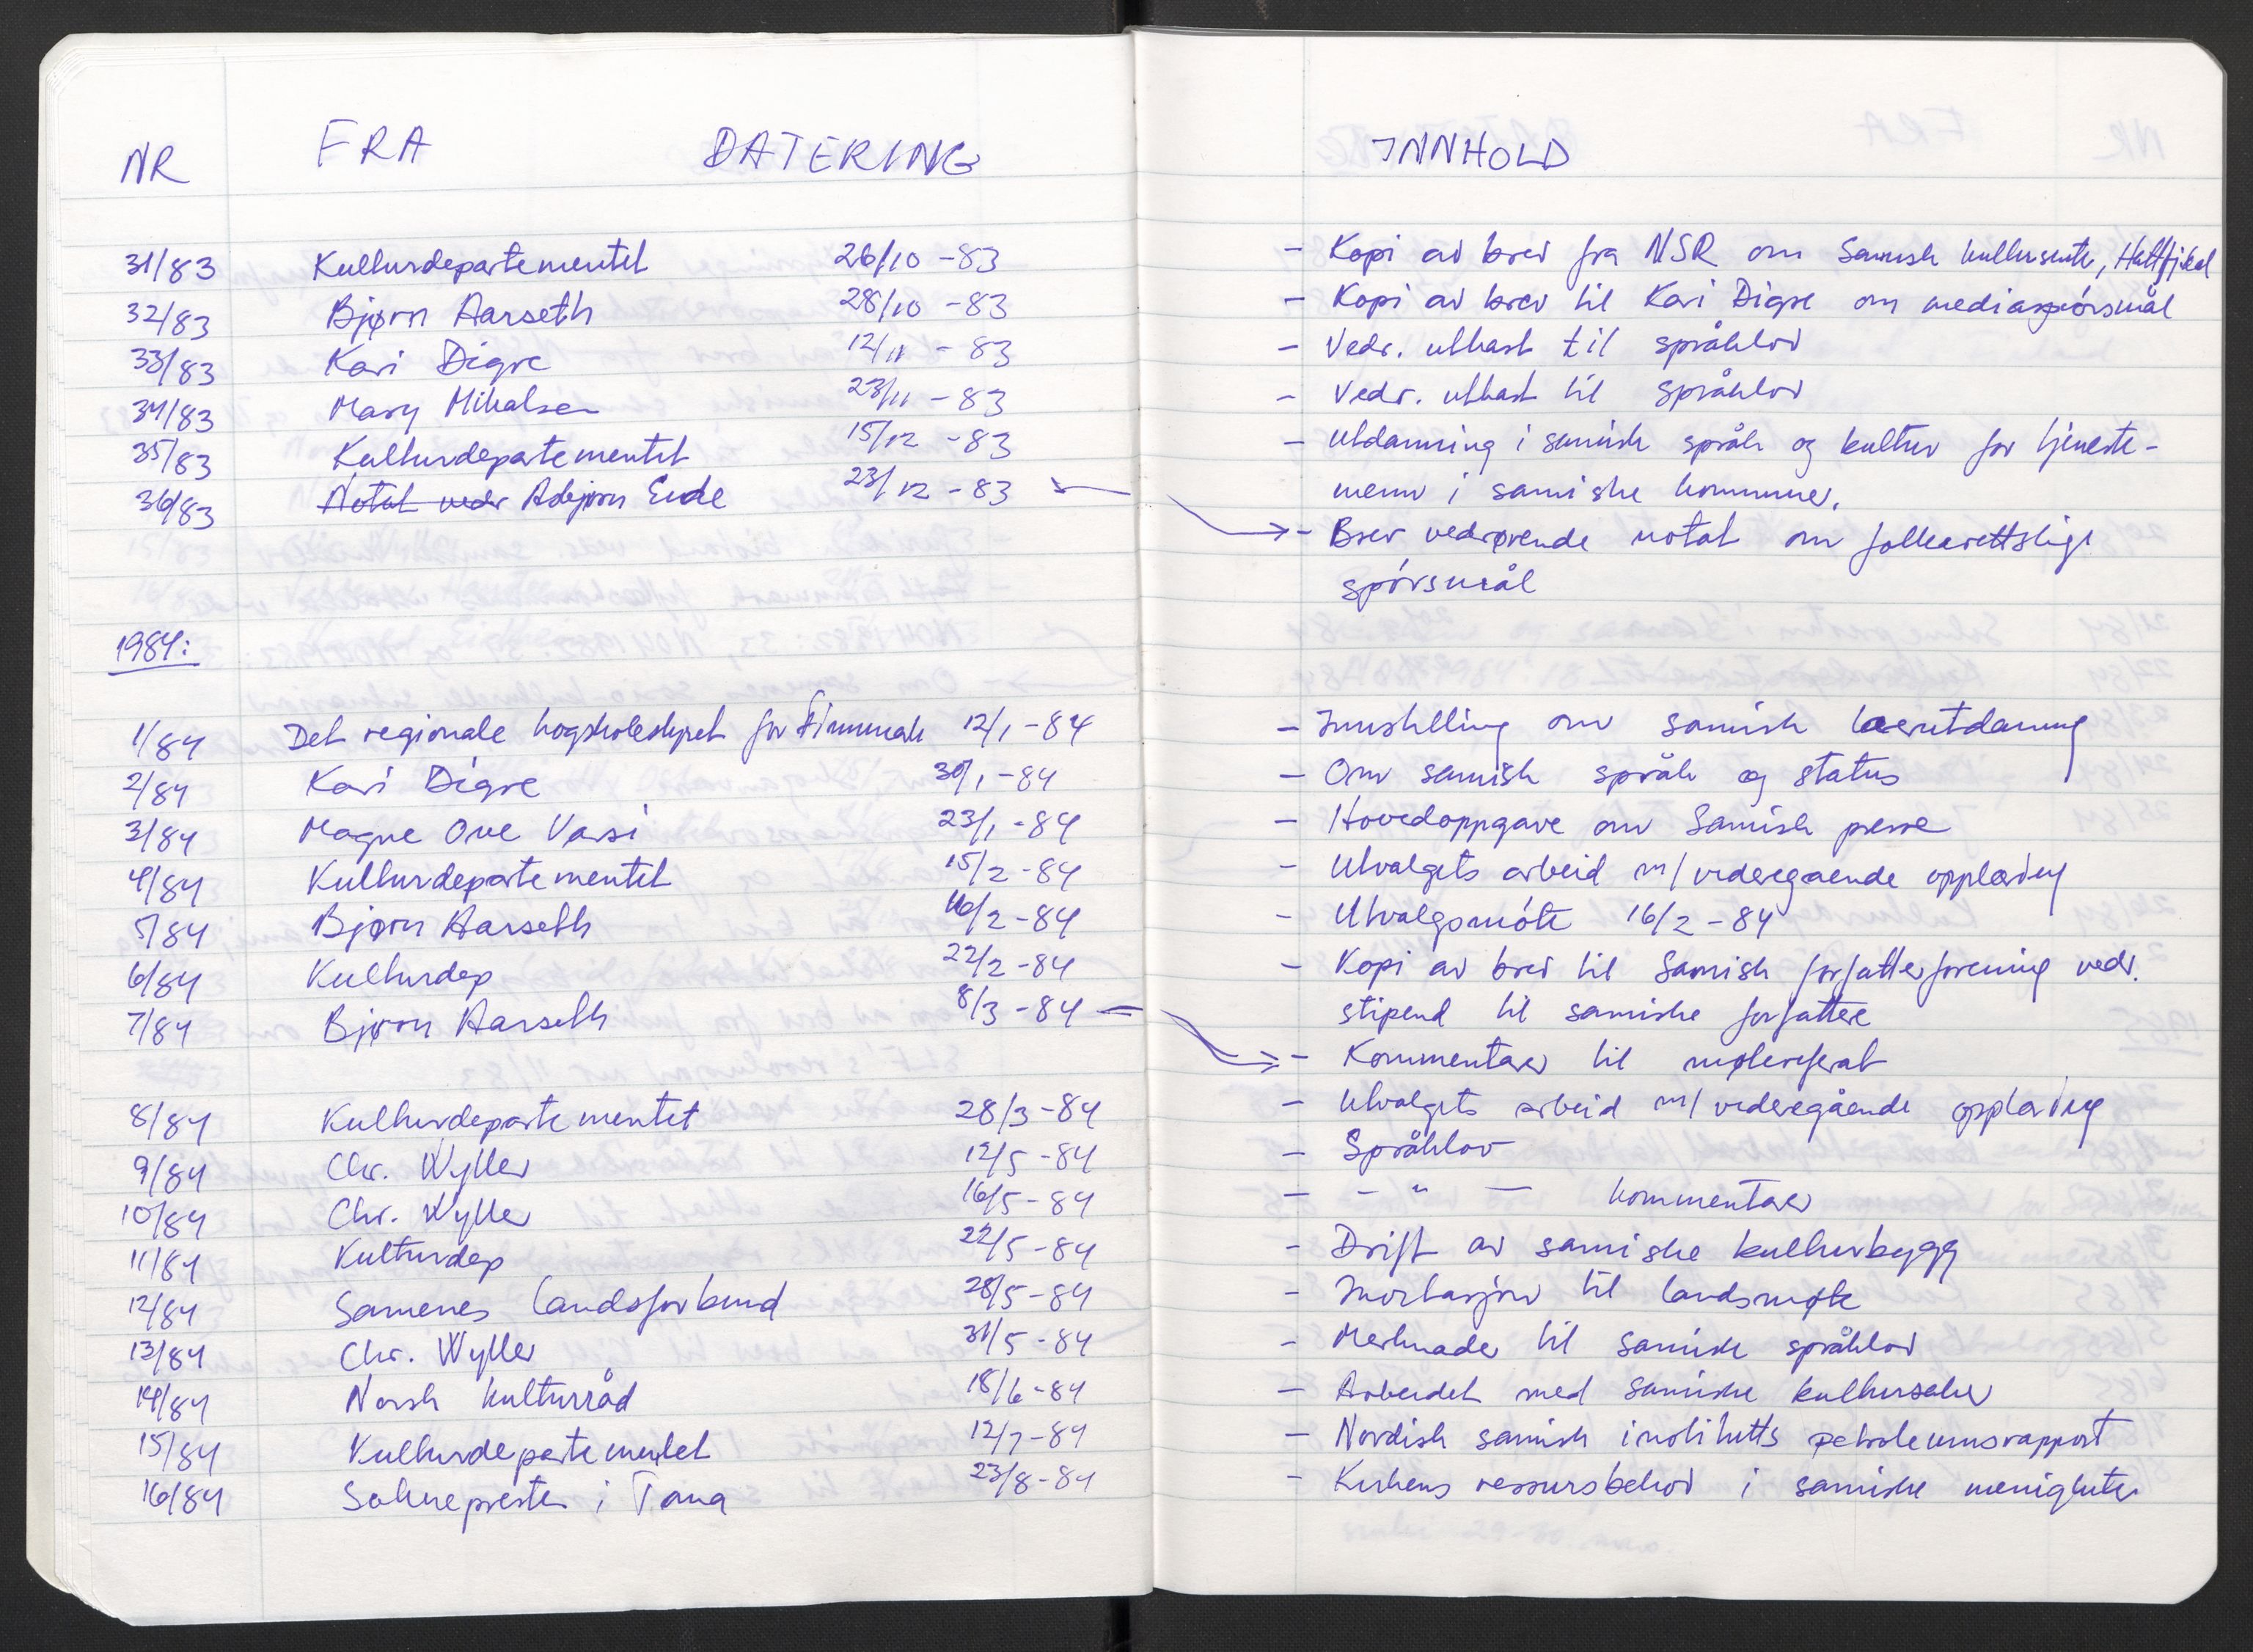 NR FRA DATERING INNHOLD
31/83 Kulturdepartementet 26/10 -83 - Kopi av brev fra NSR om Samisk kultursenter, Hattfjeldal
32/83 Bjørn Aarseth 28/10 -83 - Kopi av brev til Kari Digre om mediaspørsmål
33/83 Kari Digre 12/11 - 83 - Vedr. utkast til språklov
34/83 Mary Mikalsen 23/11 - 83 - Vedr. utkast til språklov
35/83 Kulturdepartementet 15/12 -83 - Utdanning i samisk språk og kultur for tjeneste-
menn i samiske kommuner.
36/83 Notat vedr Asbjørn Eide 23/12 - 83 - Brev vedrørende notat om folkerettslige
spørsmål
1984:
1/84 Det regionale høgskolestyret for Finnmark 12/1 -84 - Innstilling om samisk lærerutdanning
2/84 Kari Digre 30/1 -84 - Om samisk språk og status
3/84 Magne Ove Varsi 23/1 -84 - Hovedoppgave om Samisk presse
4/84 Kulturdepartementet 15/2 -84 - Utvalgets arbeid m/videregående opplæring
5/84 Bjørn Aarseth 16/2 -84 - Utvalgsmøte 16/2 -84
6/84 Kulturdep 22/2 -84 - Kopi av brev til Samisk forfatterforening vedr.
stipend til samiske forfattere
7/84 Bjørn Aarseth 8/3 -84 - Kommentarer til møtereferat
8/84 Kulturdepartementet 28/3 -84 - Utvalgets arbeid m/videregående opplæring
9/84 Chr. Wyller 12/5 -84 - Språklov
10/84 Chr. Wyller 16/5 -84 - - " - kommentarer
11/84 Kulturdep 22/5 -84 - Drift av samiske kulturbygg
12/84 Samenes Landsforbund 28/5 -84 - Invitasjon til landsmøte
13/84 Chr. Wyller 31/5 -84 - Merknader til samisk språklov
14/84 Norsk kulturråd 18/6 -84 - Arbeidet med samiske kultursaker
15/84 Kulturdepartementet 12/7 -84 - Nordisk samisk institutts petroleumsrapport
16/84 Soknepresten i Tana 23/8 -84 - Kirkens ressursbehov i samiske menigheter